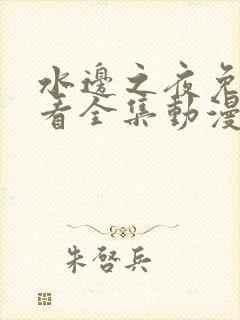 水邊之夜免
看全集動漫
朱啓兵